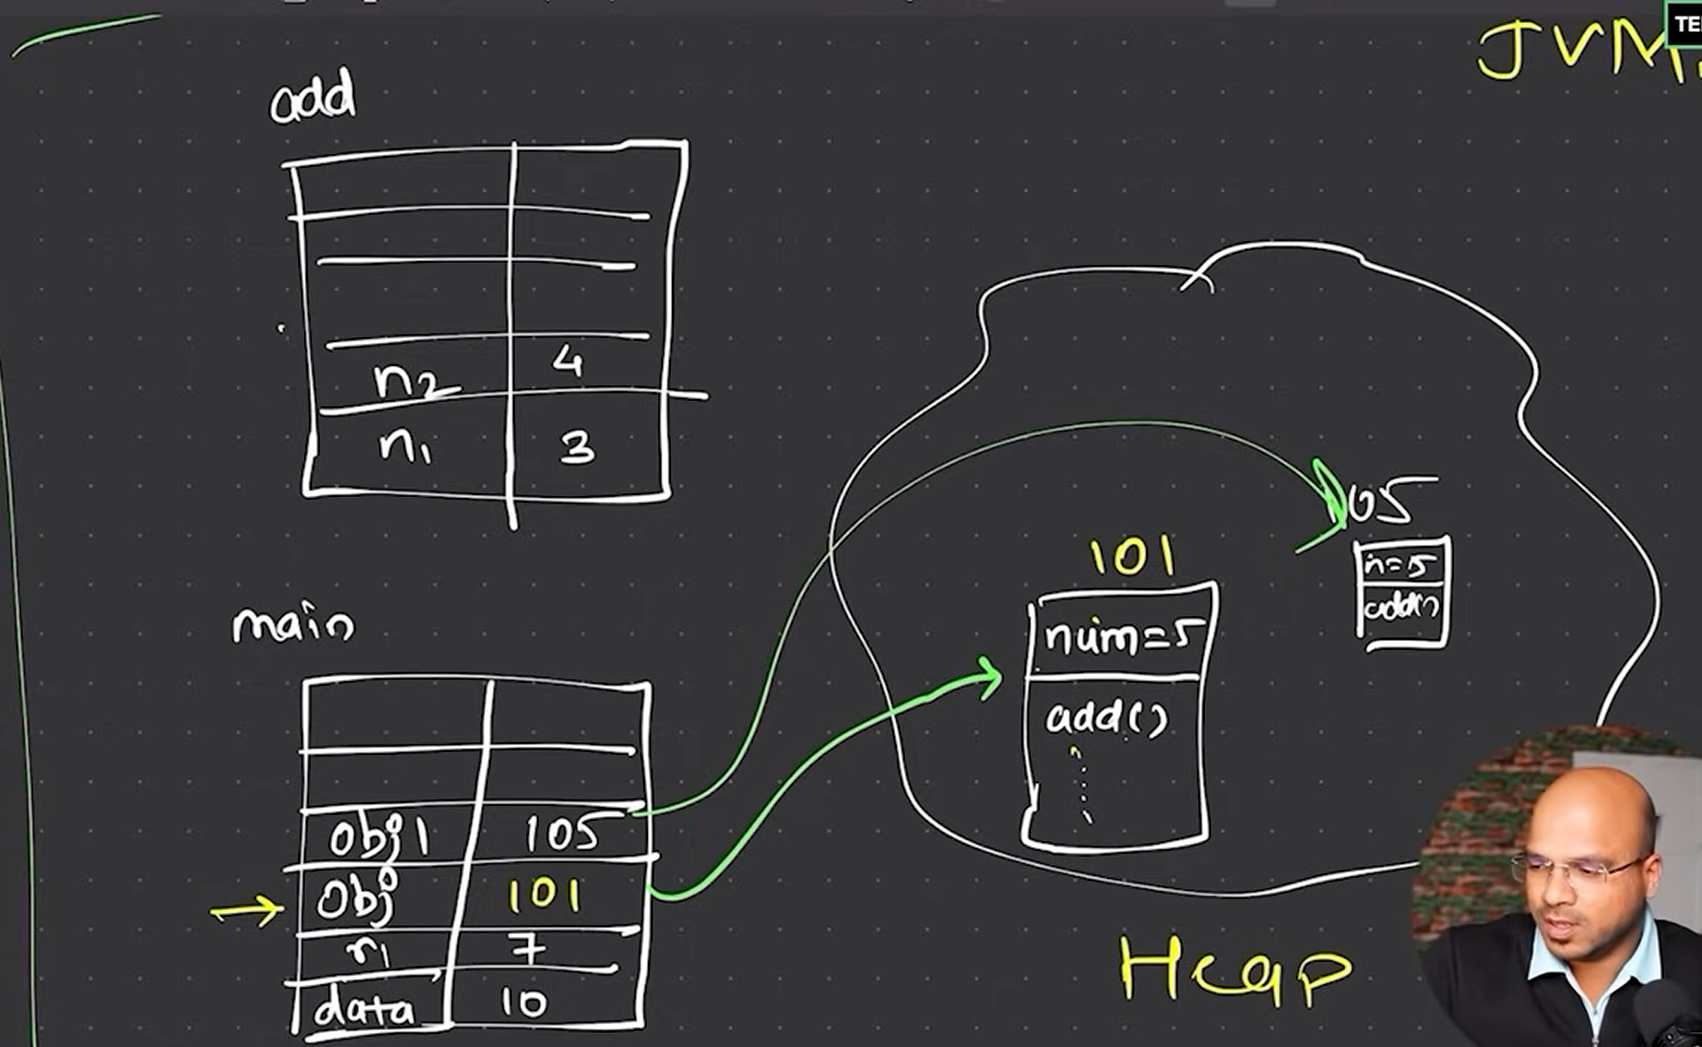 JVM
TE
add
n2 4
n1 3
main
obj1 105
obj 101
r1 7
data 10
101
num=5
add()
105
n=5
add()
Heap